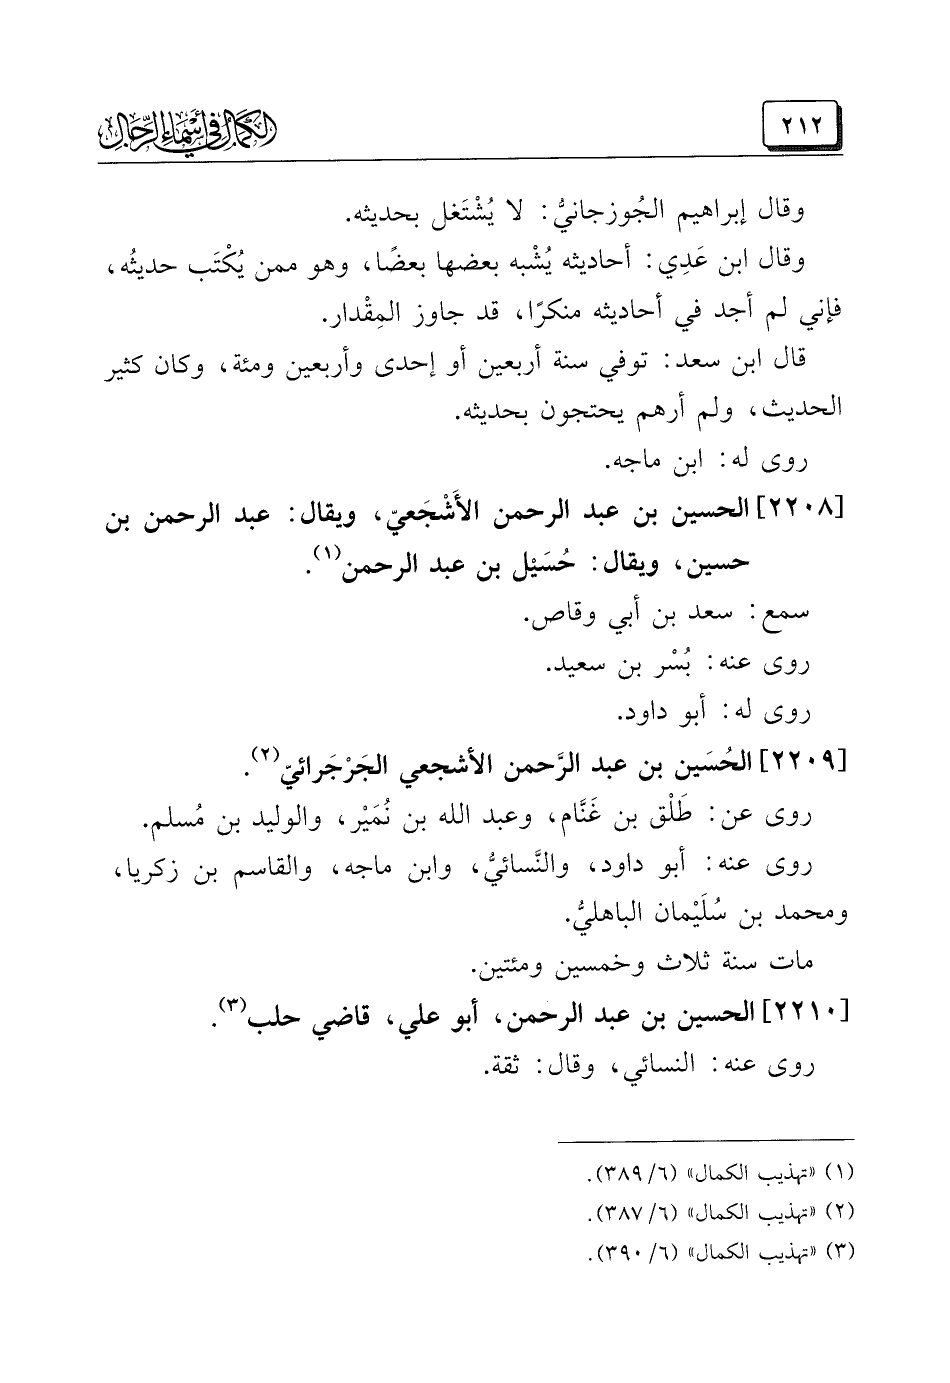 ٢١٢
الكمال في أسماء الرجال
وقال إبراهيم الجُوزجانيُّ: لا يُشْتَغل بحديثه.
وقال ابن عَدِي: أحاديثه يُشْبه بعضها بعضًا، وهو ممن يُكْتَب حديثُه،
فإني لم أجد في أحاديثه منكرًا، قد جاوز المِقْدار.
قال ابن سعد: توفي سنة أربعين أو إحدى وأربعين ومئة، وكان كثير
الحديث، ولم أرهم يحتجون بحديثه.
روى له: ابن ماجه.
[٢٢٠٨] الحسين بن عبد الرحمن الأَشْجَعيّ، ويقال: عبد الرحمن بن
حسين، ويقال: حُسَيْل بن عبد الرحمن(١).
سمع: سعد بن أبي وقاص.
روى عنه: بُسْر بن سعيد.
روى له: أبو داود.
[٢٢٠٩] الحُسَين بن عبد الرَّحمن الأشجعي الجَرْجَرائيّ(٢).
روى عن: طَلْق بن غَنَّام، وعبد الله بن نُمَيْر، والوليد بن مُسلم.
روى عنه: أبو داود، والنَّسائيُّ، وابن ماجه، والقاسم بن زكريا،
ومحمد بن سُلَيْمان الباهليُّ.
مات سنة ثلاث وخمسين ومئتين.
[٢٢١٠] الحسين بن عبد الرحمن، أبو علي، قاضي حلب(٣).
روى عنه: النسائي، وقال: ثقة.
(١) «تهذيب الكمال» (٦/ ٣٨٩).
(٢) «تهذيب الكمال» (٦/ ٣٨٧).
(٣) «تهذيب الكمال» (٦/ ٣٩٠).